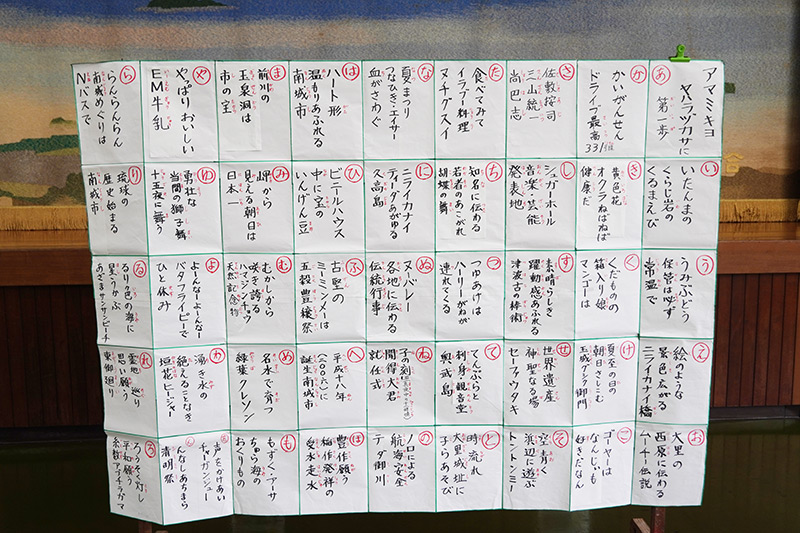 あ
アマミキヨ
ヤハラヅカサに
第一歩
い
いたんまの
くらじ岩の
くるまえび
う
うみぶどう
保管は必ず
常温で
え
絵のような
景色広がる
ニライカナイ橋
お
大里の
西原に伝わる
ムーチー伝説
か
かいがんせん
ドライブ最高
331
き
黄色花
オクラねばねば
健康だ
く
くだものの
箱入り娘
マンゴーは
け
夏至の日の
朝日さしこむ
玉城グシク御門
こ
ゴーヤーは
なんじゃも
好きだなん
さ
佐敷按司
三山統一
尚巴志
し
シュガーホール
音楽芸能
発表地
す
素晴らしき
躍動感あふれる
津波古の棒術
せ
世界遺産
神聖なる場
セーファウタキ
そ
空青く
浜辺に遊ぶ
トントンミー
た
食べてみて
イラブー料理
ヌチグスイ
ち
知名に伝わる
若者のあこがれ
胡蝶の舞
つ
つゆあけは
ハーリーがねが
連れてくる
て
てんぷらと
刺身と観音堂
奥武島
と
時流れ
大里城址に
子らあそび
な
夏まつり
つなひきエイサー
血がさわぐ
に
ニライカナイ
ティーダあがゆる
久高島
ぬ
ヌーバレー
各地に伝わる
伝統行事
ね
子の刻に
聞得大君
就任式
の
ノロによる
航海安全
テダ御川
は
ハート形
温もりあふれる
南城市
ひ
ビニールハウス
中に宝の
いんげん豆
ふ
古堅の
ミーミンメーは
五穀豊穣祭
へ
平成十八年
(二〇〇六)に
誕生南城市
ほ
豊作願う
稲作発祥の
受水走水
ま
前川の
玉泉洞は
市の宝
み
岬から
見える朝日は
日本一
む
むかしから
咲き誇る
ハマジンチョウ
天然記念物
め
名水で育つ
緑葉クレソン
も
もずくアーサ
ちゅら海の
おくりもの
や
やっぱりおいしい
EM牛乳
ゆ
勇壮な
当間の獅子舞
十五夜に舞う
よ
よーんなーよーんなー
バタフライピーで
ひと休み
わ
湧き水の
絶えることなき
垣花ヒージャー
声をかけあい
チャーガンジュー
んなしあちまら
清明祭
ら
らんらんらん
南城めぐりは
Nバスで
り
琉球の
歴史始まる
南城市
る
るり色の海に
星うかぶ
あざまサンサンビーチ
れ
霊地巡り
思い願う
東御廻り
ろ
ろうそく灯し
平和願う
糸数アブチラガマ